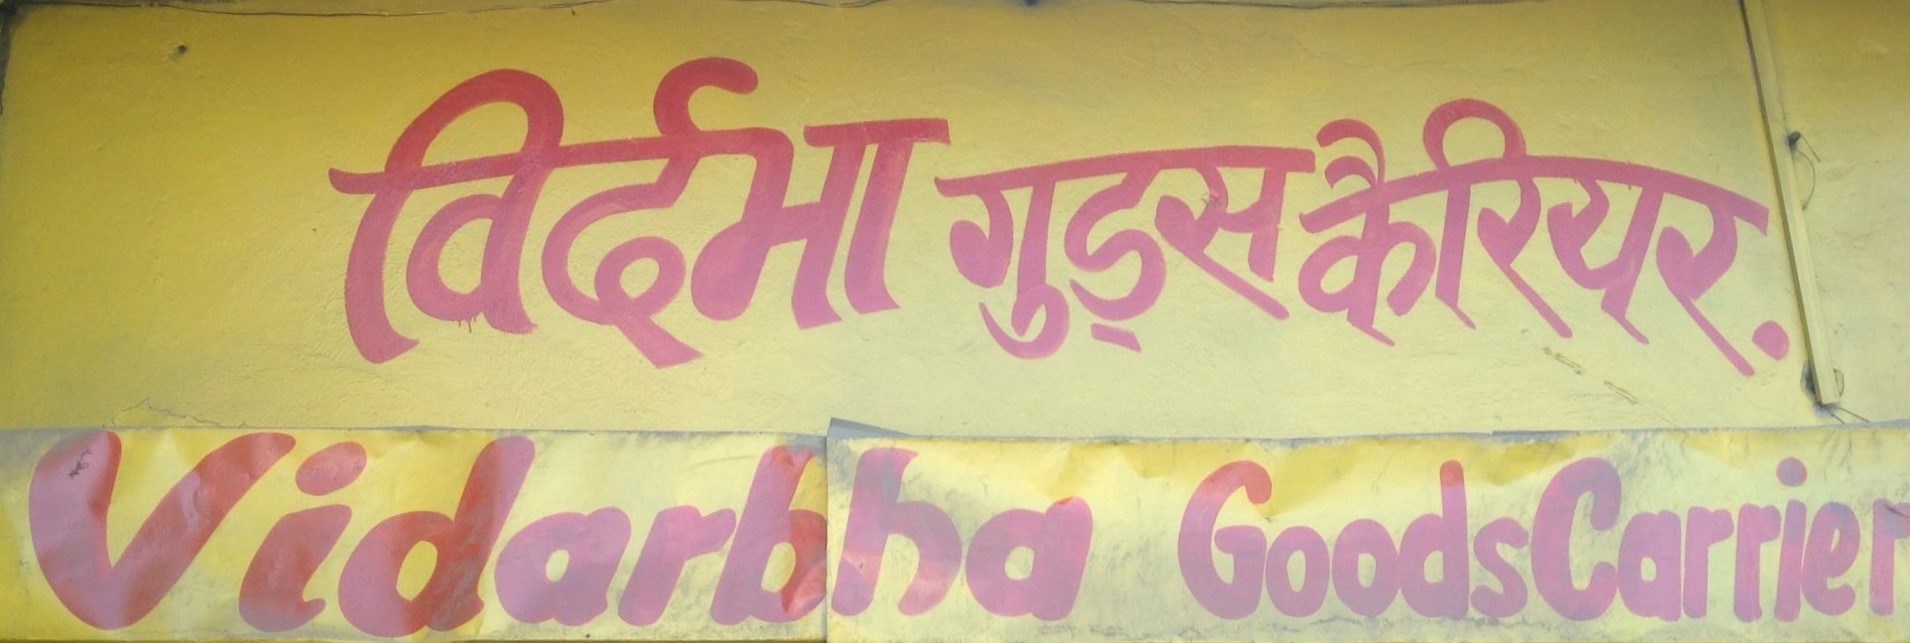 विर्दभा गुड्स कैरियर.
Vidarbha Goods Carrier